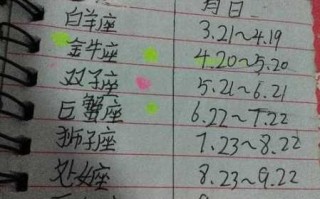 月日
白羊座 3.21~4.19
金牛座 4.20~5.20
双子座 5.21~6.21
巨蟹座 6.22~7.22
狮子座 7.23~8.22
处女座 8.23~9.22